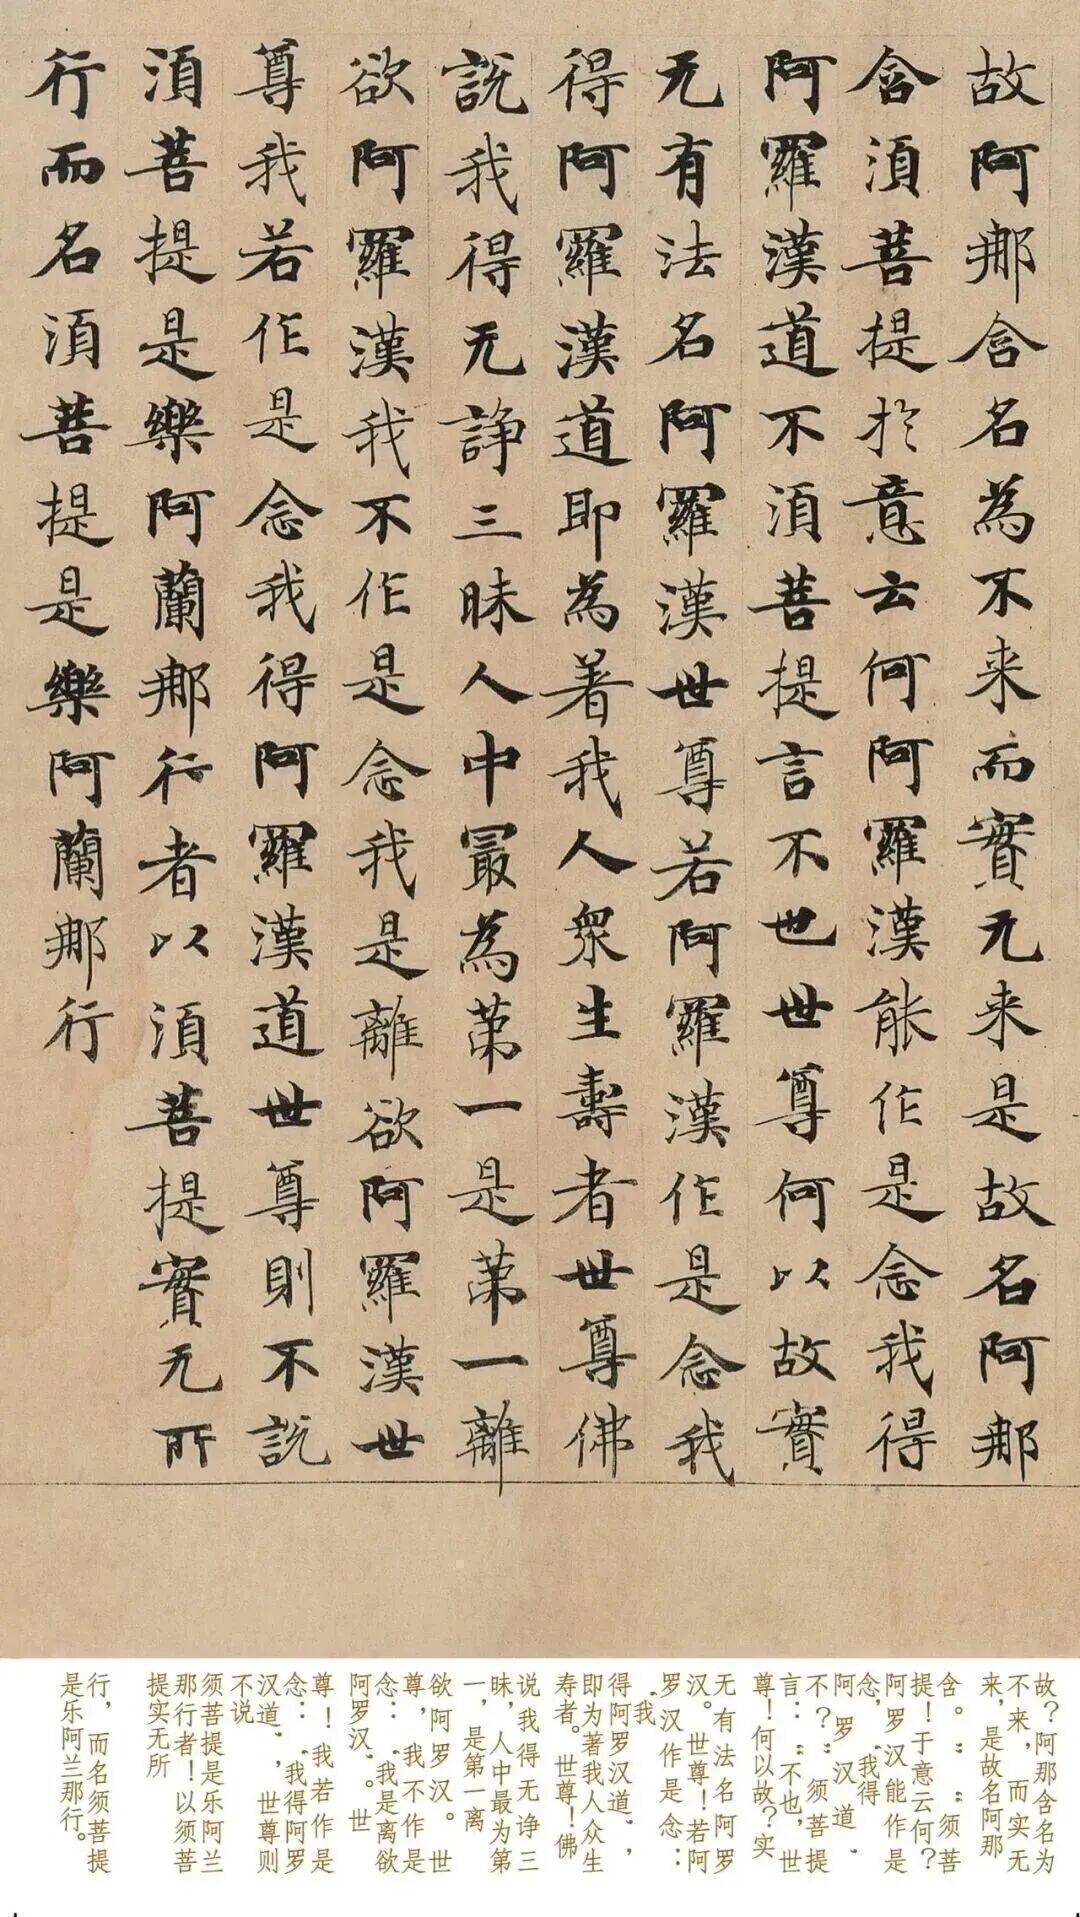 故阿那含名為不来而實无来是故名阿那
含須菩提於意云何阿羅漢能作是念我得
阿羅漢道不須菩提言不也世尊何以故實
无有法名阿羅漢世尊若阿羅漢作是念我
得阿羅漢道即為著我人衆生壽者世尊佛
說我得无諍三昧人中最為第一是第一離
欲阿羅漢我不作是念我是離欲阿羅漢世
尊我若作是念我得阿羅漢道世尊則不說
須菩提是樂阿蘭那行者以須菩提實无所
行而名須菩提是樂阿蘭那行
故？阿那含名为
不来，而实无
来，是故名阿那
含。”“须菩
提！于意云何？
阿罗汉能作是
念，‘我得
阿罗汉道’，
不？”须菩提
言：“不也，世
尊！何以故？实
无有法名阿罗
汉。世尊！若阿
罗汉作是念：
‘我
得阿罗汉道’，
即为著我人众生
寿者。世尊！佛
说我得无诤三
昧，人中最为第
一，是第一离
欲阿罗汉。世
尊，我不作是
念：‘我是离欲
阿罗汉’。世
尊！我若作是
念：‘我得阿罗
汉道’，世尊则
不说
须菩提是乐阿兰
那行者！以须菩
提实无所
行，而名须菩提
是乐阿兰那行。